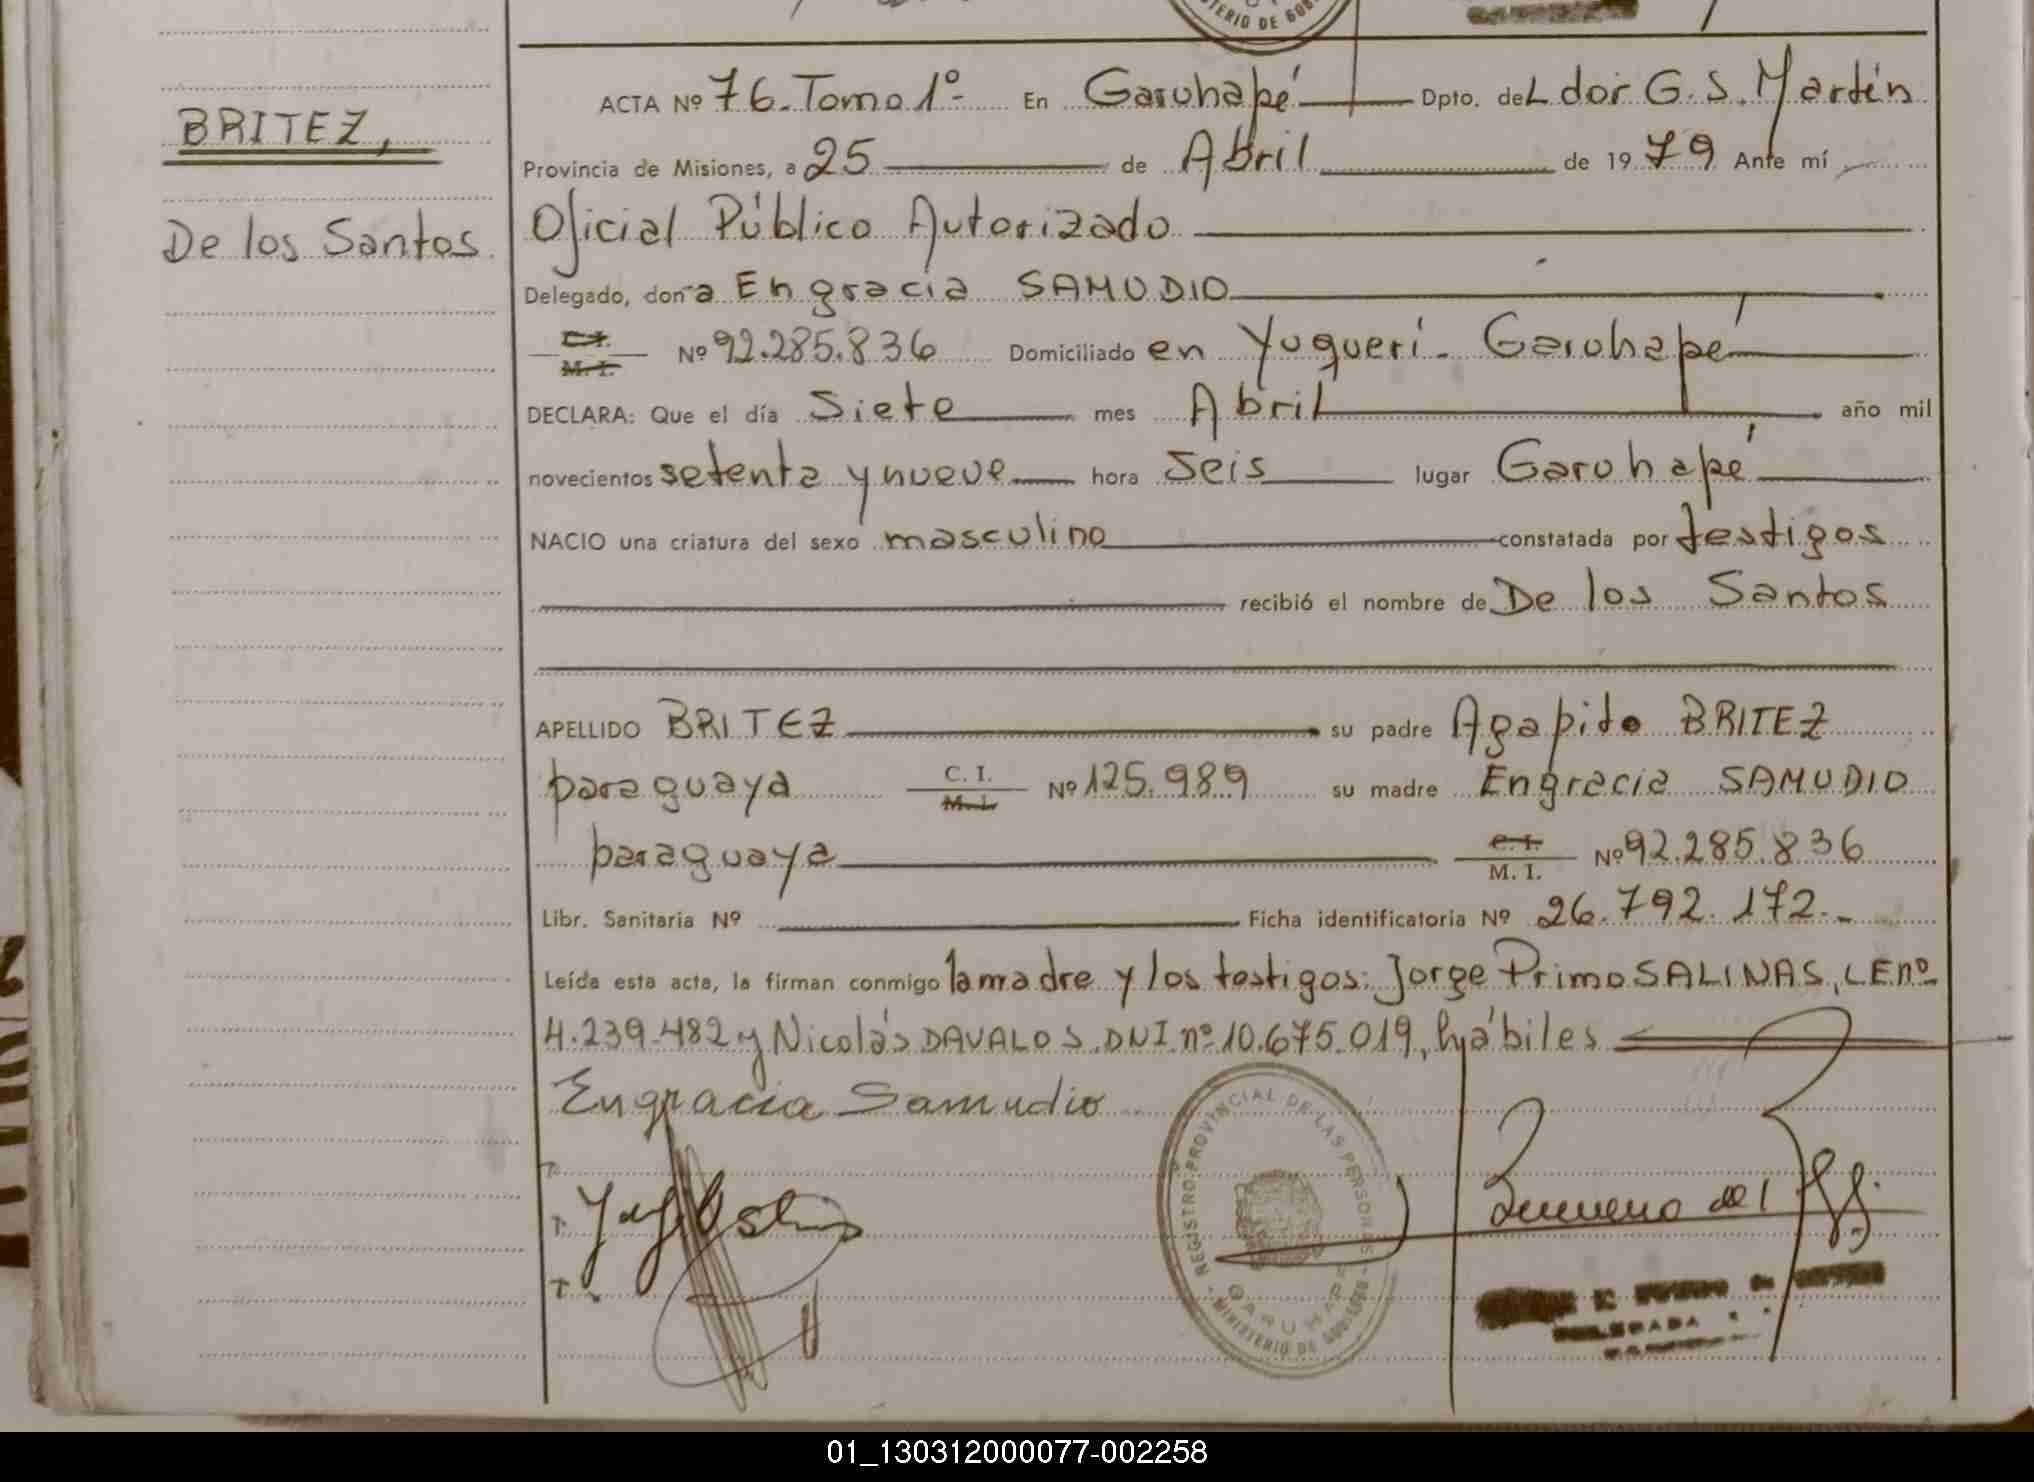 MINISTERIO DE GOB
ACTA Nº 76. Tomo 1º- En Garuhapé Dpto. deL dor G. S. Martín
BRITEZ,
Provincia de Misiones, a 25 de Abril de 1979 Ante mí
De los Santos
Oficial Público Autorizado
Delegado, donªa Engracia SAMUDIO
C.I.
M. I. Nº 92.285.836 Domiciliado en Yuquerí - Garuhapé
DECLARA: Que el día Siete mes Abril año mil
novecientos setenta y nueve hora Seis lugar Garuhapé
NACIO una criatura del sexo masculino constatada por testigos
recibió el nombre de De los Santos
APELLIDO BRITEZ su padre Agapito BRITEZ
paraguaya C. I. M. I. Nº 125.989 su madre Engracia SAMUDIO
paraguaya C. I. M. I. Nº 92.285.836
Libr. Sanitaria Nº Ficha identificatoria Nº 26.792.172.-
Leída esta acta, la firman conmigo la madre y los testigos: Jorge Primo SALINAS, LE nº
4.239.482 y Nicolás DAVALOS. DNI nº 10.675.019, hábiles
Engracia Samudio
REGISTRO PROVINCIAL DE LAS PERSONAS
GARUHAPE
MINISTERIO DE GOBIERNO
DELEGADA
01_130312000077-002258